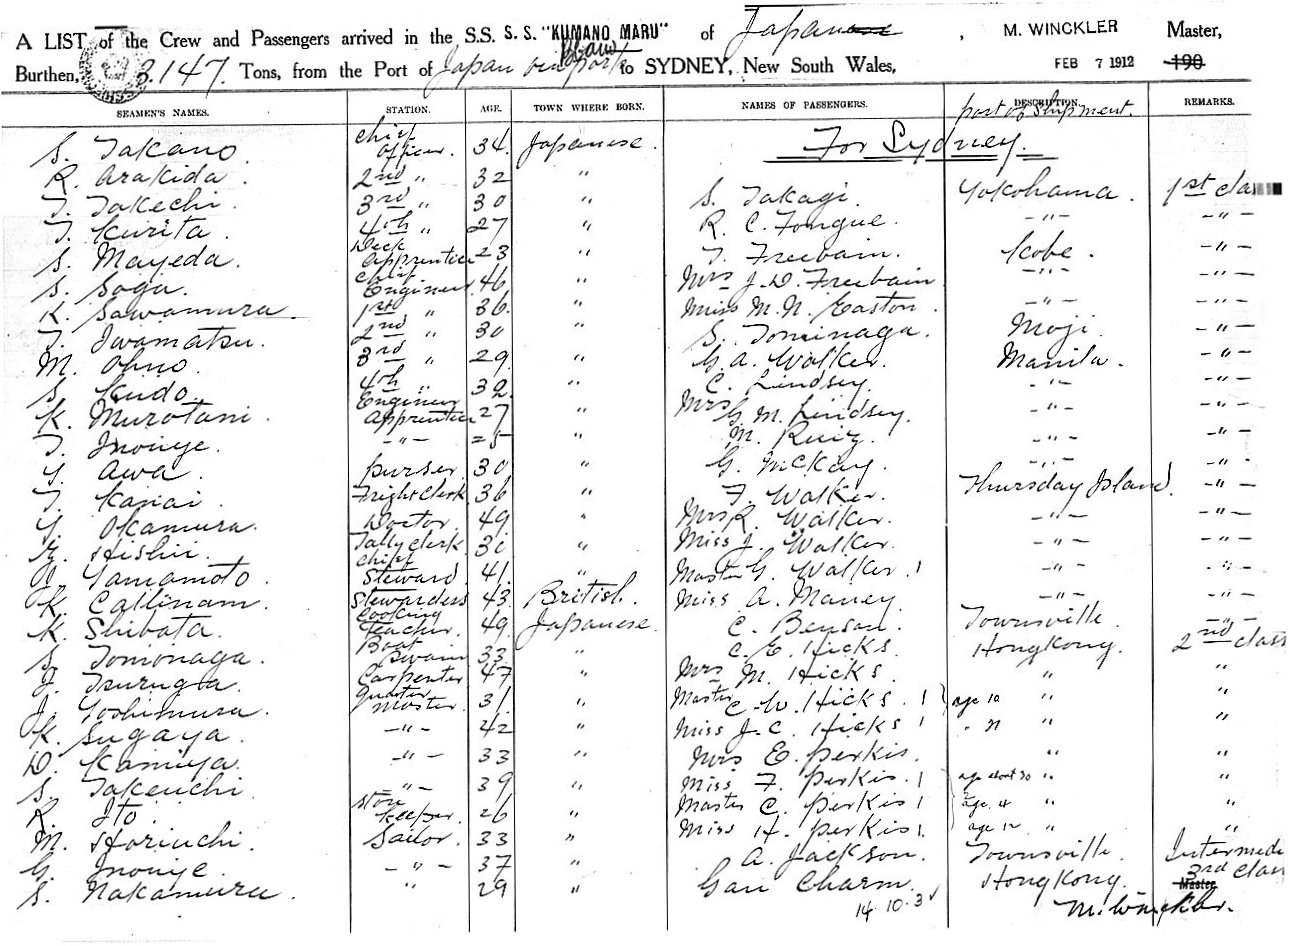 A LIST of the Crew and Passengers arrived in the S.S. S. S. "KUMANO MARU" of Japan , M. WINCKLER Master,
Burthen, 3147 Tons, from the Port of Japan via ports to SYDNEY, New South Wales, FEB 7 1912 190
SEAMEN'S NAMES. STATION. AGE. TOWN WHERE BORN. NAMES OF PASSENGERS. DESCRIPTION. port of shipment. REMARKS.
For Sydney.
S. Takano Chief Officer. 34 Japanese.
R. Arakida. 2nd " 32 "
T. Takechi. 3rd " 30 " S. Takagi. Yokohama. 1st clas
T. Kurita. 4th " 27 " R. C. Tongue. -"- -"-
S. Mayeda. Deck Apprentice 23 " T. Freebain. Kobe. -"-
S. Soga. Chief Engineer 46 " Mrs J. D. Freebain -"- -"-
K. Sawamura. 1st " 36. " Miss M. N. Easton. -"- -"-
T. Iwamatsu. 2nd " 30 " S. Tominaga. Moji. -"-
M. Ohno. 3rd " 29 " G. A. Walker. Manila. -"-
S. Kudo. 4th " 32 " C. Lindsey. -"- -"-
K. Murotani. Engineer Apprentice 27 " Mrs G. M. Lindsey. -"- -"-
T. Inouye. -"- 25 " M. Ruiz. -"- -"-
Y. Awa. Purser 30 " G. McKay. -"- -"-
T. Kanai. Freight Clerk 36 " F. Walker. Thursday Island. -"-
Y. Okamura. Doctor. 49 " Mrs R. Walker. -"- -"-
Hishii. Tally Clerk " Miss J. Walker. -"- -"-
Yamamoto. Chief Steward. 41. " Master G. Walker. 1 -"- -"-
K. Callinam. Stewardess 43 British. Miss A. Maney. -"- -"-
K. Shibata. Cooking Teacher. 49 Japanese. C. Benson. Townsville. -"-
S. Tomonaga. Boat Swain 33 " C. E. Hicks. Hong Kong. 2nd class
J. Tsuruga. Carpenter 47 " Mrs M. Hicks. " "
J. Yoshimura. Quarter Master. 31. " Master C. W. Hicks. 1 age 10 " "
K. Sugaya. -"- 42 " Miss J. C. Hicks 1 " "
D. Kamiya. -"- 33 " Mrs E. Perkis. " "
S. Takeuchi. -"- 39 " Miss F. Perkis. 1 " "
R. Ito. Store Keeper. 26 " Master C. Perkis 1 age 14 " "
M. Horiuchi. Sailor. 33 " Miss H. Perkis 1. age 12 " "
G. Inouye. -"- 37 " A. Jackson. Townsville. Intermedi
S. Nakamura. " 29 " Gan Charm. Hong Kong. 3rd clas
Master
14 10. 3 M. Winckler.